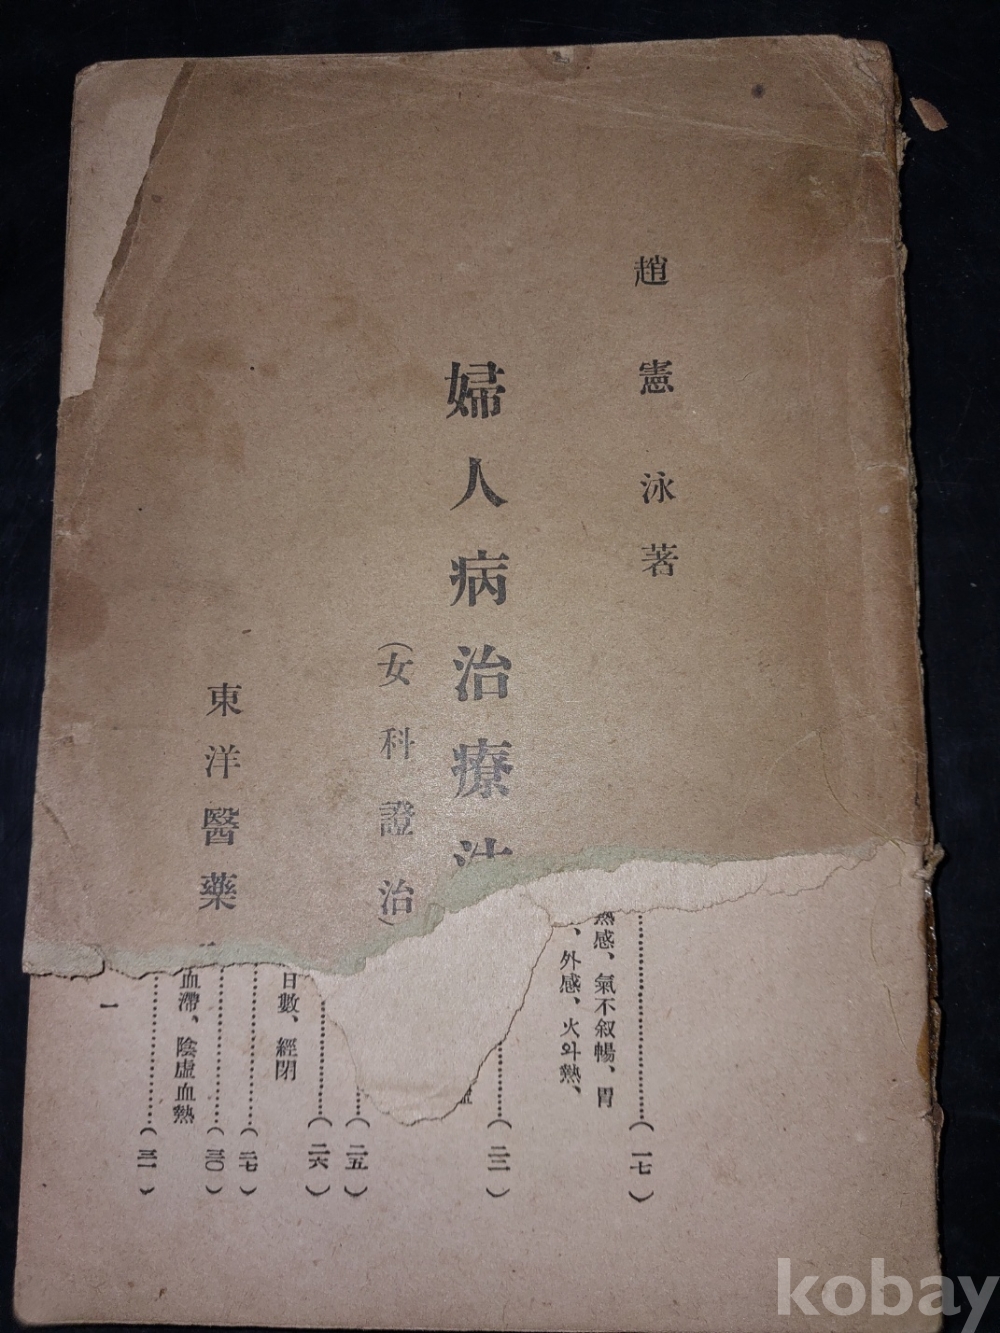 趙憲泳著
婦人病治療
(女科證治)
東洋醫藥
(一七)
熱感、氣不叙暢、胃
、外感、火와熱、
(二三)
(二五)
(二六)
日數、經閉
(二七)
(三〇)
血滯、陰虛血熱
(三一)
一
kobay